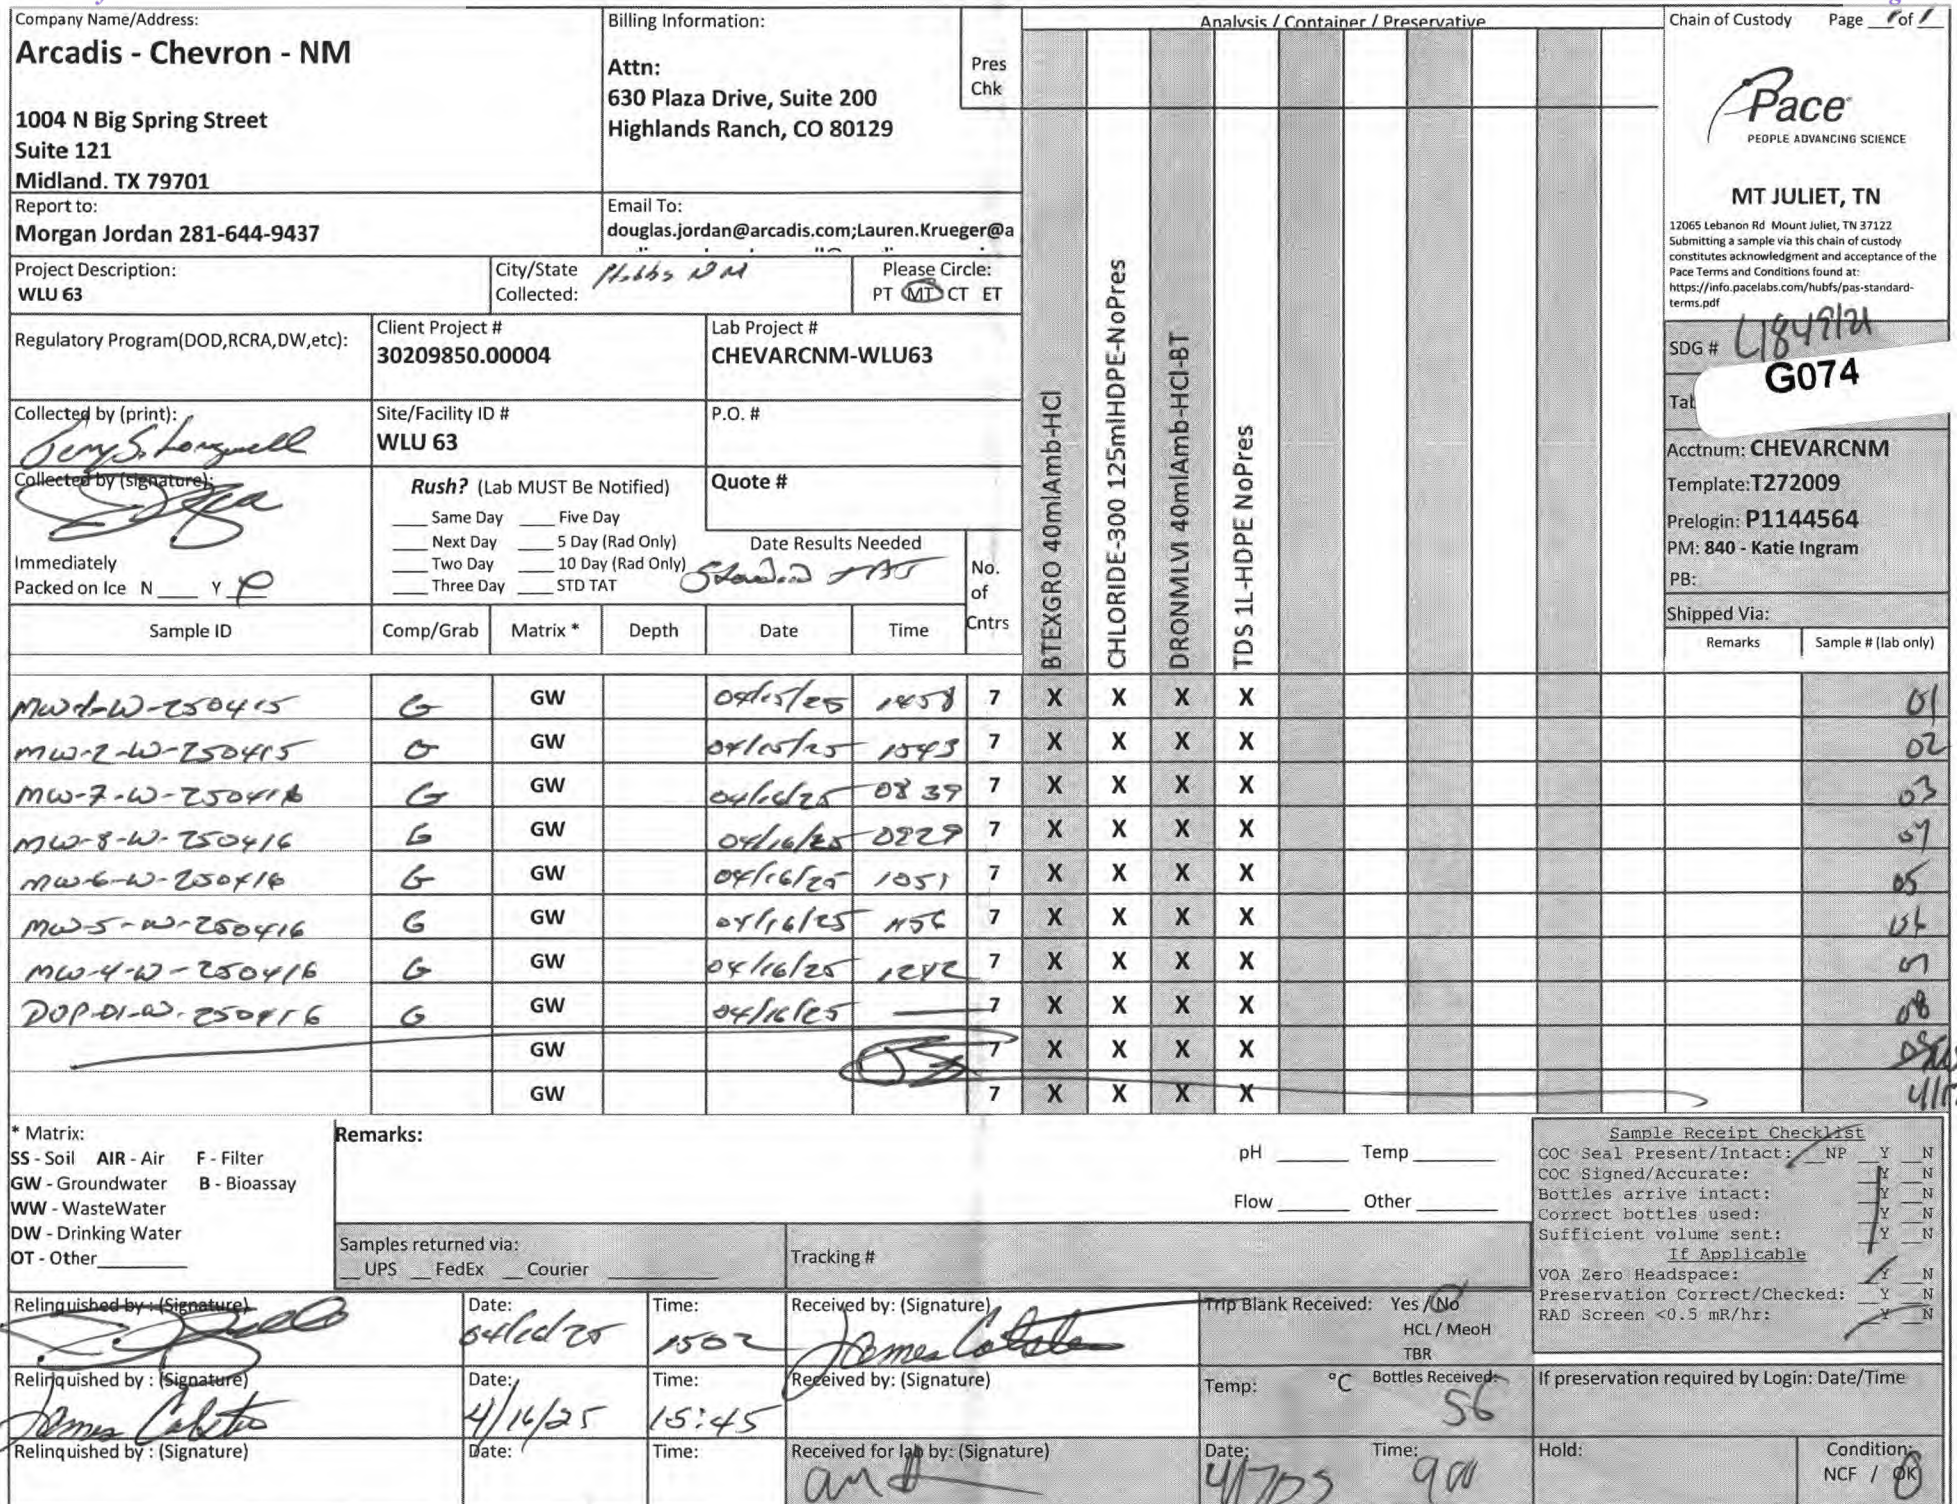 Company Name/Address:
Arcadis - Chevron - NM
1004 N Big Spring Street
Suite 121
Midland. TX 79701
Billing Information:
Attn:
630 Plaza Drive, Suite 200
Highlands Ranch, CO 80129
Pres
Chk
Analysis / Container / Preservative
Chain of Custody Page 1 of 1
Pace
PEOPLE ADVANCING SCIENCE
MT JULIET, TN
12065 Lebanon Rd Mount Juliet, TN 37122
Submitting a sample via this chain of custody
constitutes acknowledgment and acceptance of the
Pace Terms and Conditions found at:
https://info.pacelabs.com/hubfs/pas-standard-
terms.pdf
Report to:
Morgan Jordan 281-644-9437
Email To:
douglas.jordan@arcadis.com;Lauren.Krueger@a
Project Description:
WLU 63
City/State
Collected: Hobbs NM
Please Circle:
PT MT CT ET
Regulatory Program(DOD,RCRA,DW,etc):
Client Project #
30209850.00004
Lab Project #
CHEVARCNM-WLU63
SDG # L1849121
G074
Tab
Collected by (print):
Site/Facility ID #
WLU 63
P.O. #
Acctnum: CHEVARCNM
Template:T272009
Prelogin: P1144564
PM: 840 - Katie Ingram
PB:
Shipped Via:
Collected by (signature):
Rush? (Lab MUST Be Notified)
Same Day Five Day
Next Day 5 Day (Rad Only)
Two Day 10 Day (Rad Only)
Three Day STD TAT
Quote #
Date Results Needed
Standard TAT
Immediately
Packed on Ice N Y
No.
of
Cntrs
BTEXGRO 40mlAmb-HCl
CHLORIDE-300 125mlHDPE-NoPres
DRONMLVI 40mlAmb-HCl-BT
TDS 1L-HDPE NoPres
Sample ID Comp/Grab Matrix * Depth Date Time Remarks Sample # (lab only)
MW-1-W-250415 G GW 04/15/25 1458 7 X X X X 01
MW-2-W-250415 G GW 04/15/25 1543 7 X X X X 02
MW-7-W-250416 G GW 04/16/25 0839 7 X X X X 03
MW-8-W-250416 G GW 04/16/25 7 X X X X 04
MW-6-W-250416 G GW 04/16/25 1051 7 X X X X 05
MW-5-W-250416 G GW 04/16/25 1156 7 X X X X 06
MW-4-W-250416 G GW 04/16/25 1242 7 X X X X 07
DUP-01-W-250416 G GW 04/16/25 — 7 X X X X 08
GW 7 X X X X
GW 7 X X X X
* Matrix:
SS - Soil AIR - Air F - Filter
GW - Groundwater B - Bioassay
WW - WasteWater
DW - Drinking Water
OT - Other
Remarks:
pH Temp
Flow Other
Samples returned via:
UPS FedEx Courier
Tracking #
Sample Receipt Checklist
COC Seal Present/Intact: NP Y N
COC Signed/Accurate: Y N
Bottles arrive intact: Y N
Correct bottles used: Y N
Sufficient volume sent: Y N
If Applicable
VOA Zero Headspace: Y N
Preservation Correct/Checked: Y N
RAD Screen <0.5 mR/hr: Y N
Relinquished by : (Signature)
Date: 04/16/25
Time: 1502
Received by: (Signature)
Trip Blank Received: Yes / No
HCL / MeoH
TBR
Relinquished by : (Signature)
Date: 4/16/25
Time: 15:45
Received by: (Signature)
Temp: °C
Bottles Received: 56
If preservation required by Login: Date/Time
Relinquished by : (Signature)
Date:
Time:
Received for lab by: (Signature)
Date: 4/17/25
Time: 900
Hold:
Condition:
NCF / OK